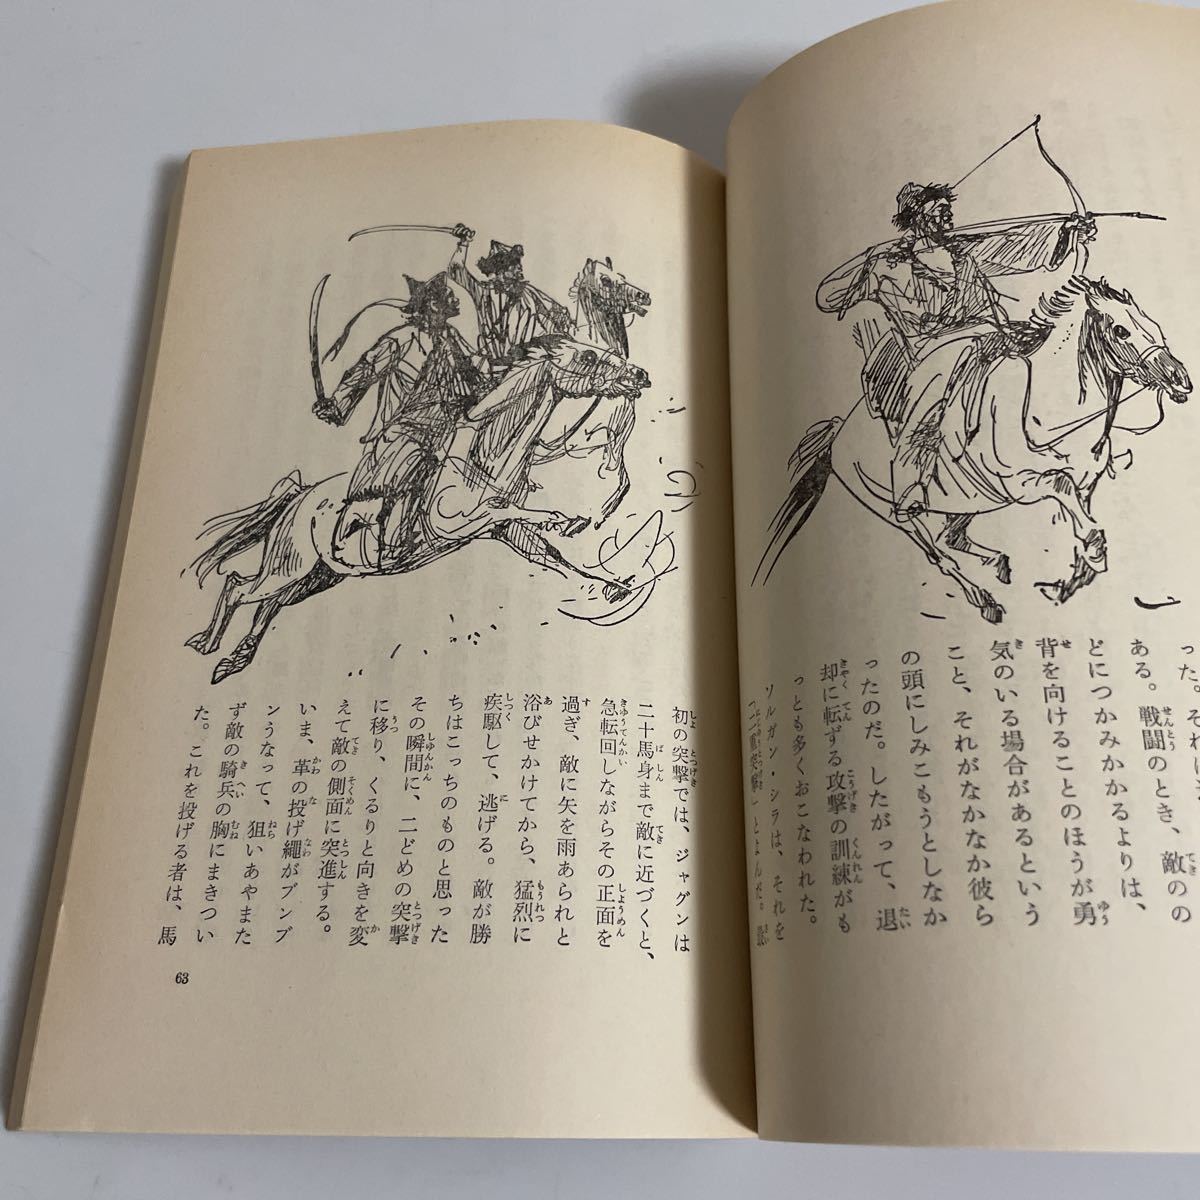 った。それ
ある。戦闘のとき、敵のの
どにつかみかかるよりは、
背を向けることのほうが勇
気のいる場合があるという
こと、それがなかなか彼ら
の頭にしみこもうとしなか
ったのだ。したがって、退
却に転ずる攻撃の訓練がも
っとも多くおこなわれた。
ソルガン・シラは、それを
「二重突撃」とよんだ。最
初の突撃では、ジャグンは
二十馬身まで敵に近づくと、
急転回しながらその正面を
過ぎ、敵に矢を雨あられと
浴びせかけてから、猛烈に
疾駆して、逃げる。敵が勝
ちはこっちのものと思った
その瞬間に、二どめの突撃
に移り、くるりと向きを変
えて敵の側面に突進する。
いま、革の投げ縄がブンブ
ンうなって、狙いあやまた
ず敵の騎兵の胸にまきつい
た。これを投げる者は、馬
63